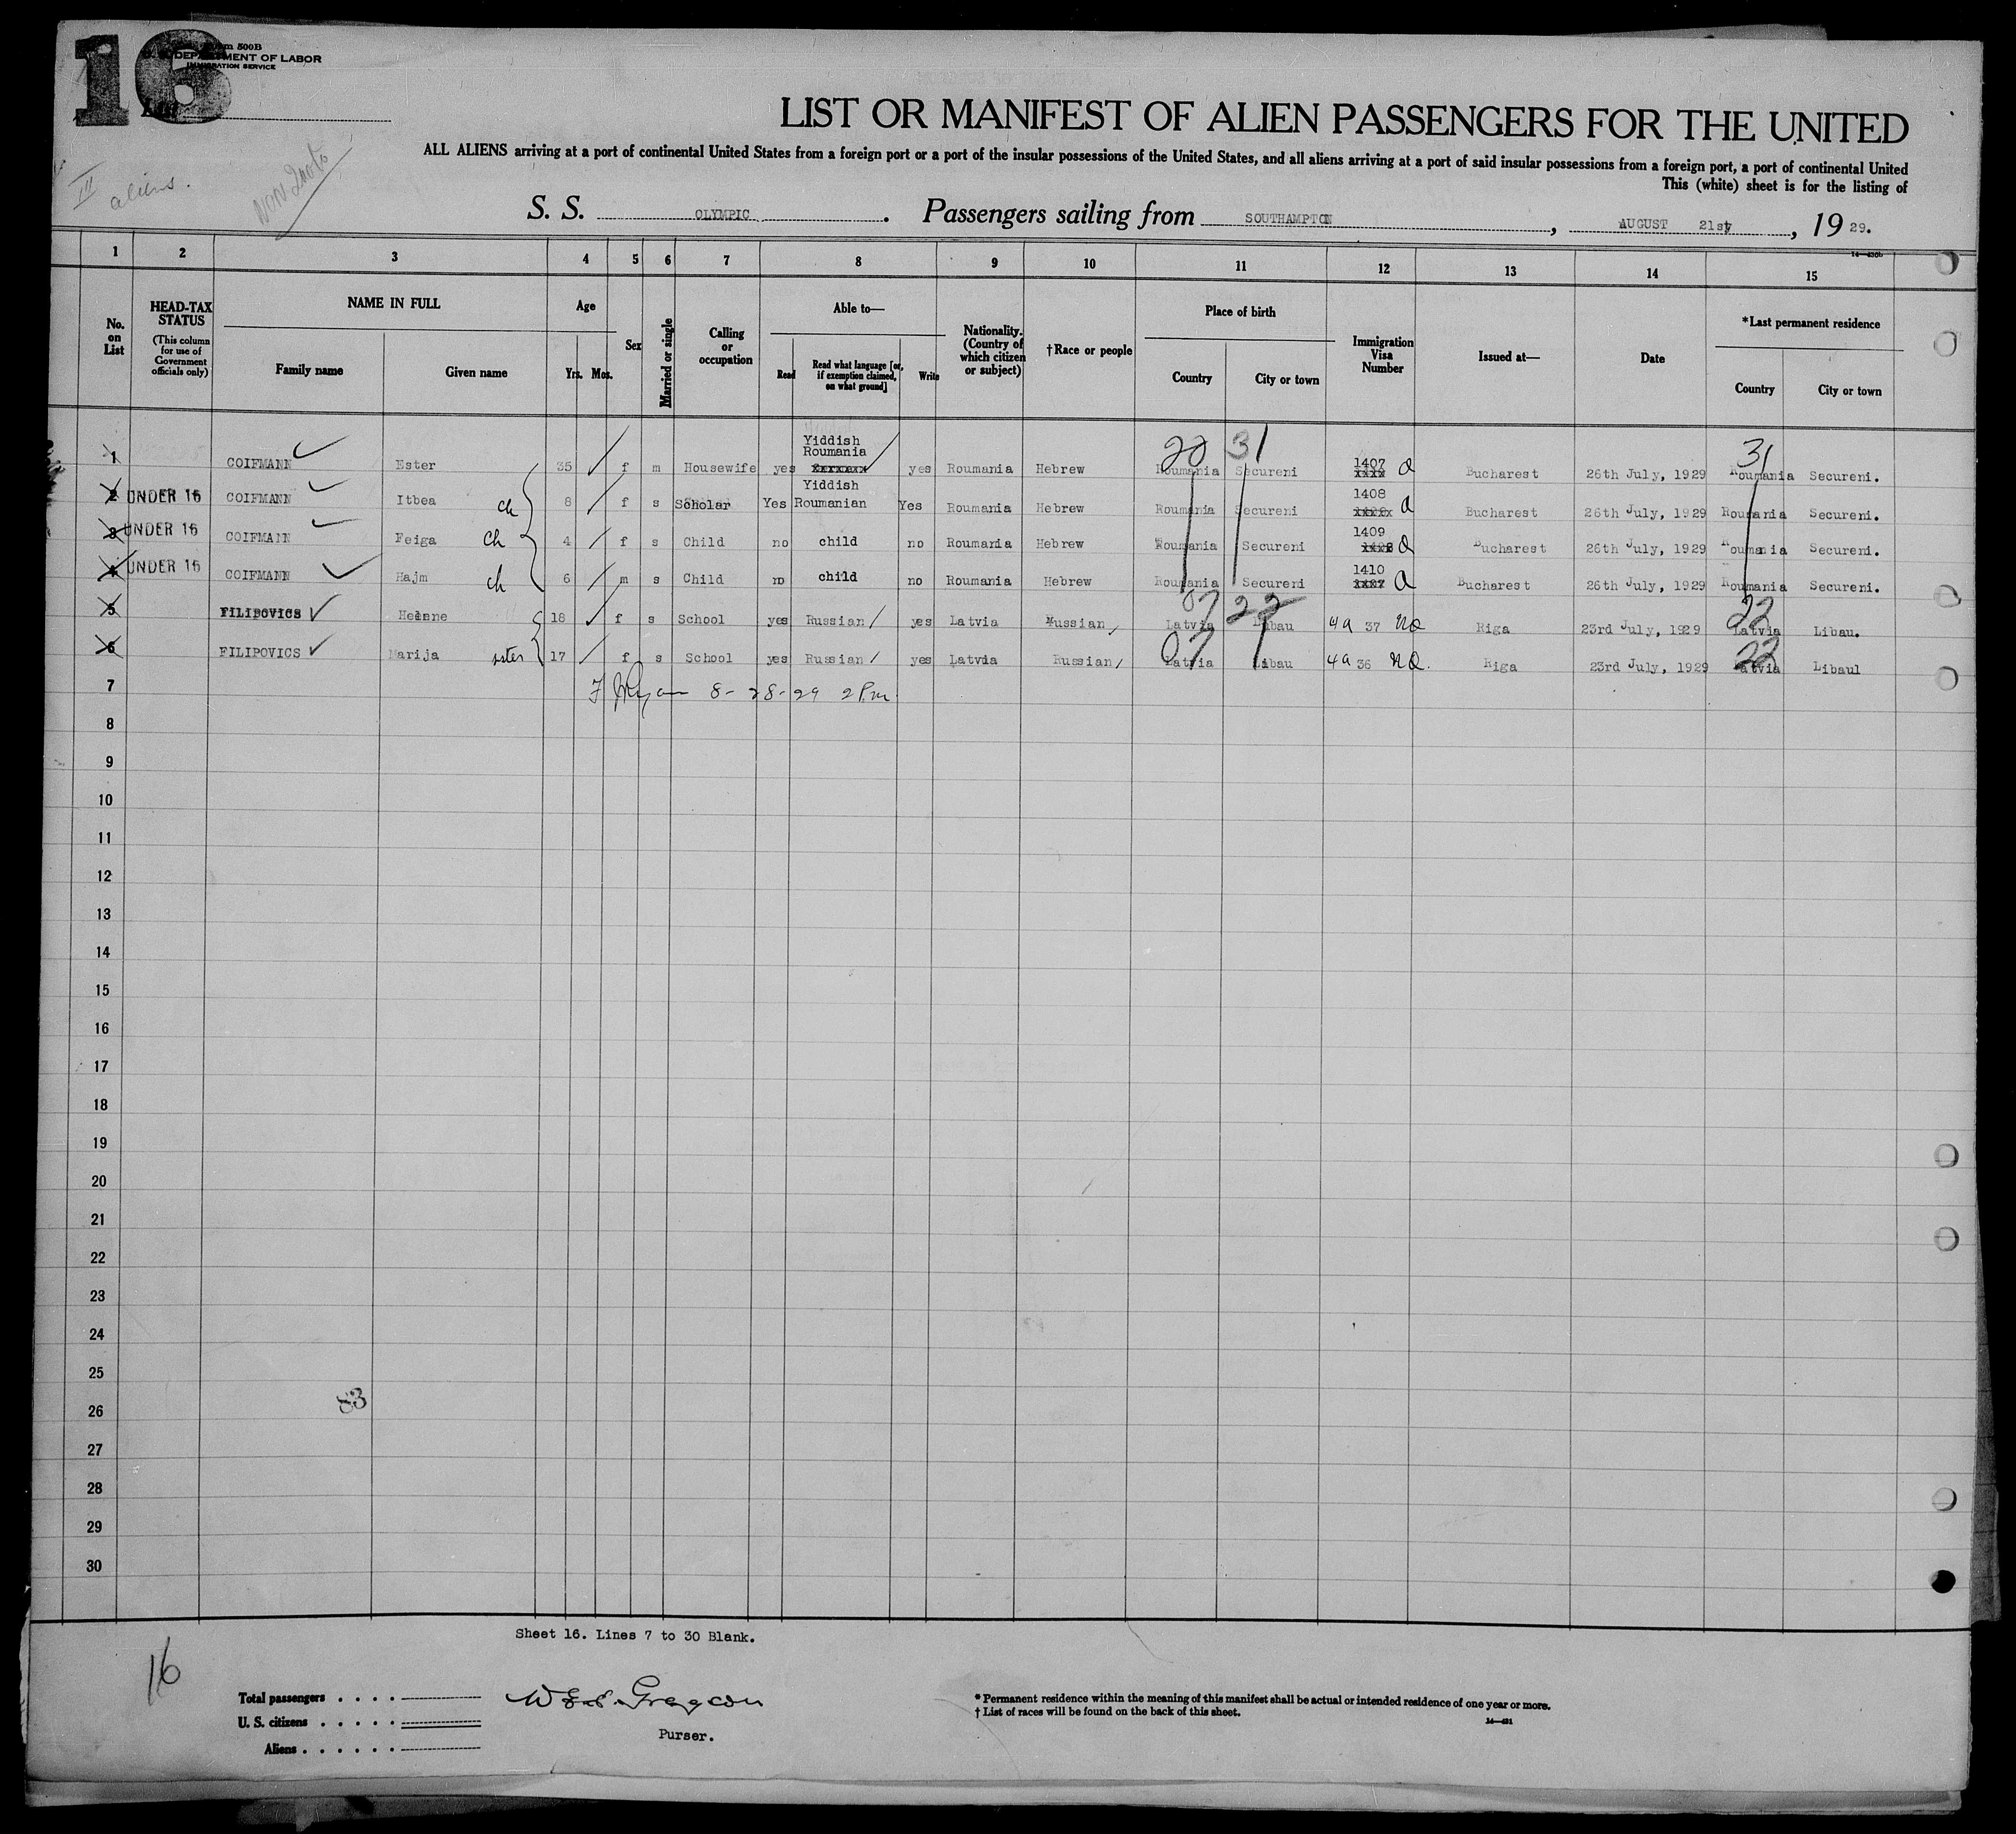 16
Form 500B
DEPARTMENT OF LABOR
IMMIGRATION SERVICE
List
III aliens.
Non Quota
LIST OR MANIFEST OF ALIEN PASSENGERS FOR THE UNITED
ALL ALIENS arriving at a port of continental United States from a foreign port or a port of the insular possessions of the United States, and all aliens arriving at a port of said insular possessions from a foreign port, a port of continental United
This (white) sheet is for the listing of
S. S. OLYMPIC. Passengers sailing from SOUTHAMPTON, AUGUST 21st, 1929.
1 2 3 4 5 6 7 8 9 10 11 12 13 14 15
No. on List
HEAD-TAX STATUS (This column for use of Government officials only)
NAME IN FULL
Family name Given name
Age
Yrs. Mos.
Sex
Married or single
Calling or occupation
Able to—
Read Read what language [or, if exemption claimed, on what ground] Write
Nationality. (Country of which citizen or subject)
†Race or people
Place of birth
Country City or town
Immigration Visa Number
Issued at—
Date
*Last permanent residence
Country City or town
1 COIFMANN Ester 35 f m Housewife yes Yiddish Roumania yes Roumania Hebrew Roumania Secureni 1407 Q Bucharest 26th July, 1929 Roumania Secureni.
2 UNDER 16 COIFMANN Itbea ch 8 f s Scholar Yes Yiddish Roumanian Yes Roumania Hebrew Roumania Secureni 1408 Q Bucharest 26th July, 1929 Roumania Secureni.
3 UNDER 16 COIFMANN Feiga ch 4 f s Child no child no Roumania Hebrew Roumania Secureni 1409 Q Bucharest 26th July, 1929 Roumania Secureni.
4 UNDER 16 COIFMANN Hajm ch 6 m s Child no child no Roumania Hebrew Roumania Secureni 1410 Q Bucharest 26th July, 1929 Roumania Secureni.
5 FILIPOVICS 18 f s School yes Russian yes Latvia Russian Latvia Libau 4a 37 NQ Riga 23rd July, 1929 Latvia Libau.
6 FILIPOVICS Marija sister 17 f s School yes Russian yes Latvia Russian Latvia Libau 4a 36 NQ. Riga 23rd July, 1929 Latvia Libaul
20 31 31
07 22 22
07 22
7 8-28-29 2 Pm
8
9
10
11
12
13
14
15
16
17
18
19
20
21
22
23
24
25
83
26
27
28
29
30
Sheet 16. Lines 7 to 30 Blank.
16
Total passengers . . . .
U. S. citizens . . . . .
Aliens . . . . . .
Purser.
* Permanent residence within the meaning of this manifest shall be actual or intended residence of one year or more.
† List of races will be found on the back of this sheet.